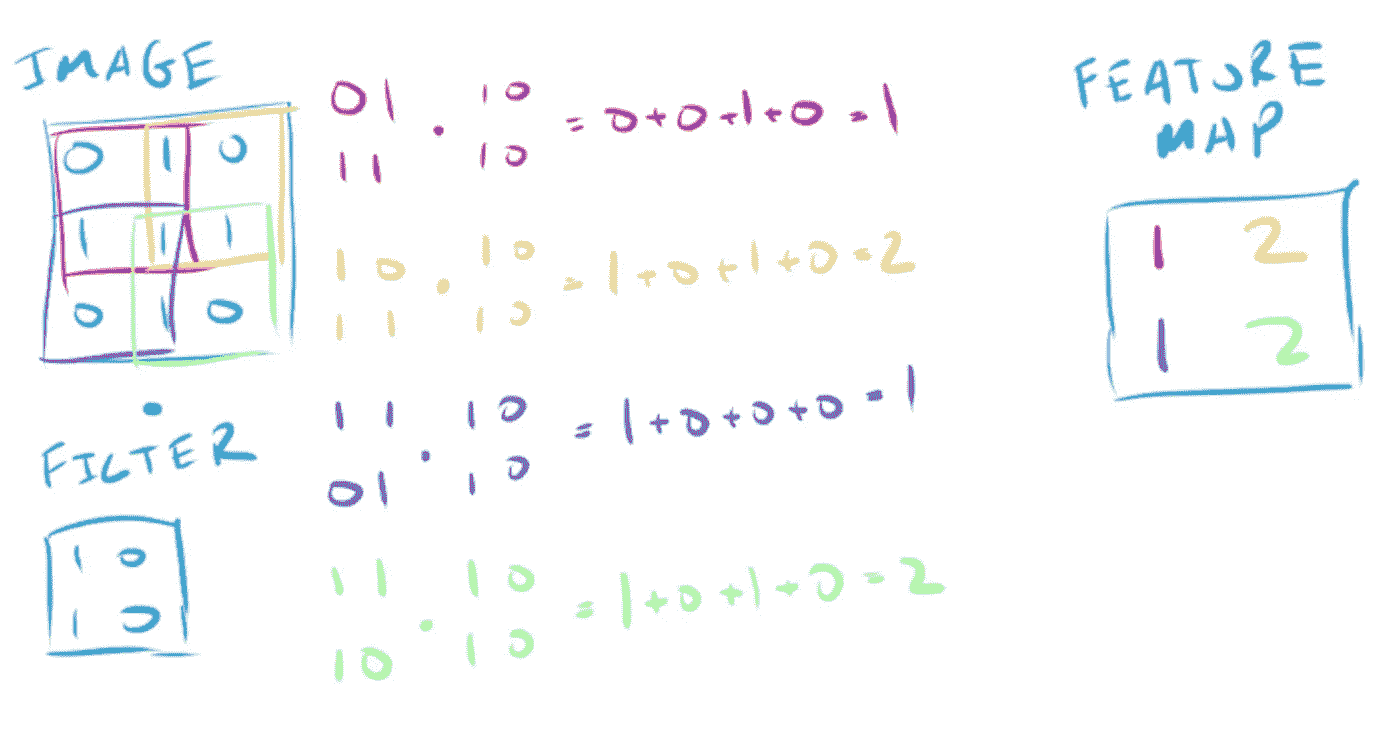 IMAGE
0 1 0
1 1 1
0 1 0
FILTER
1 0
1 0
01 . 10 = 0+0+1+0 = 1
11 10
10 . 10 = 1+0+1+0 = 2
11 10
11 . 10 = 1+0+0+0 = 1
01 10
11 . 10 = 1+0+1+0 = 2
10 10
FEATURE
MAP
1 2
1 2